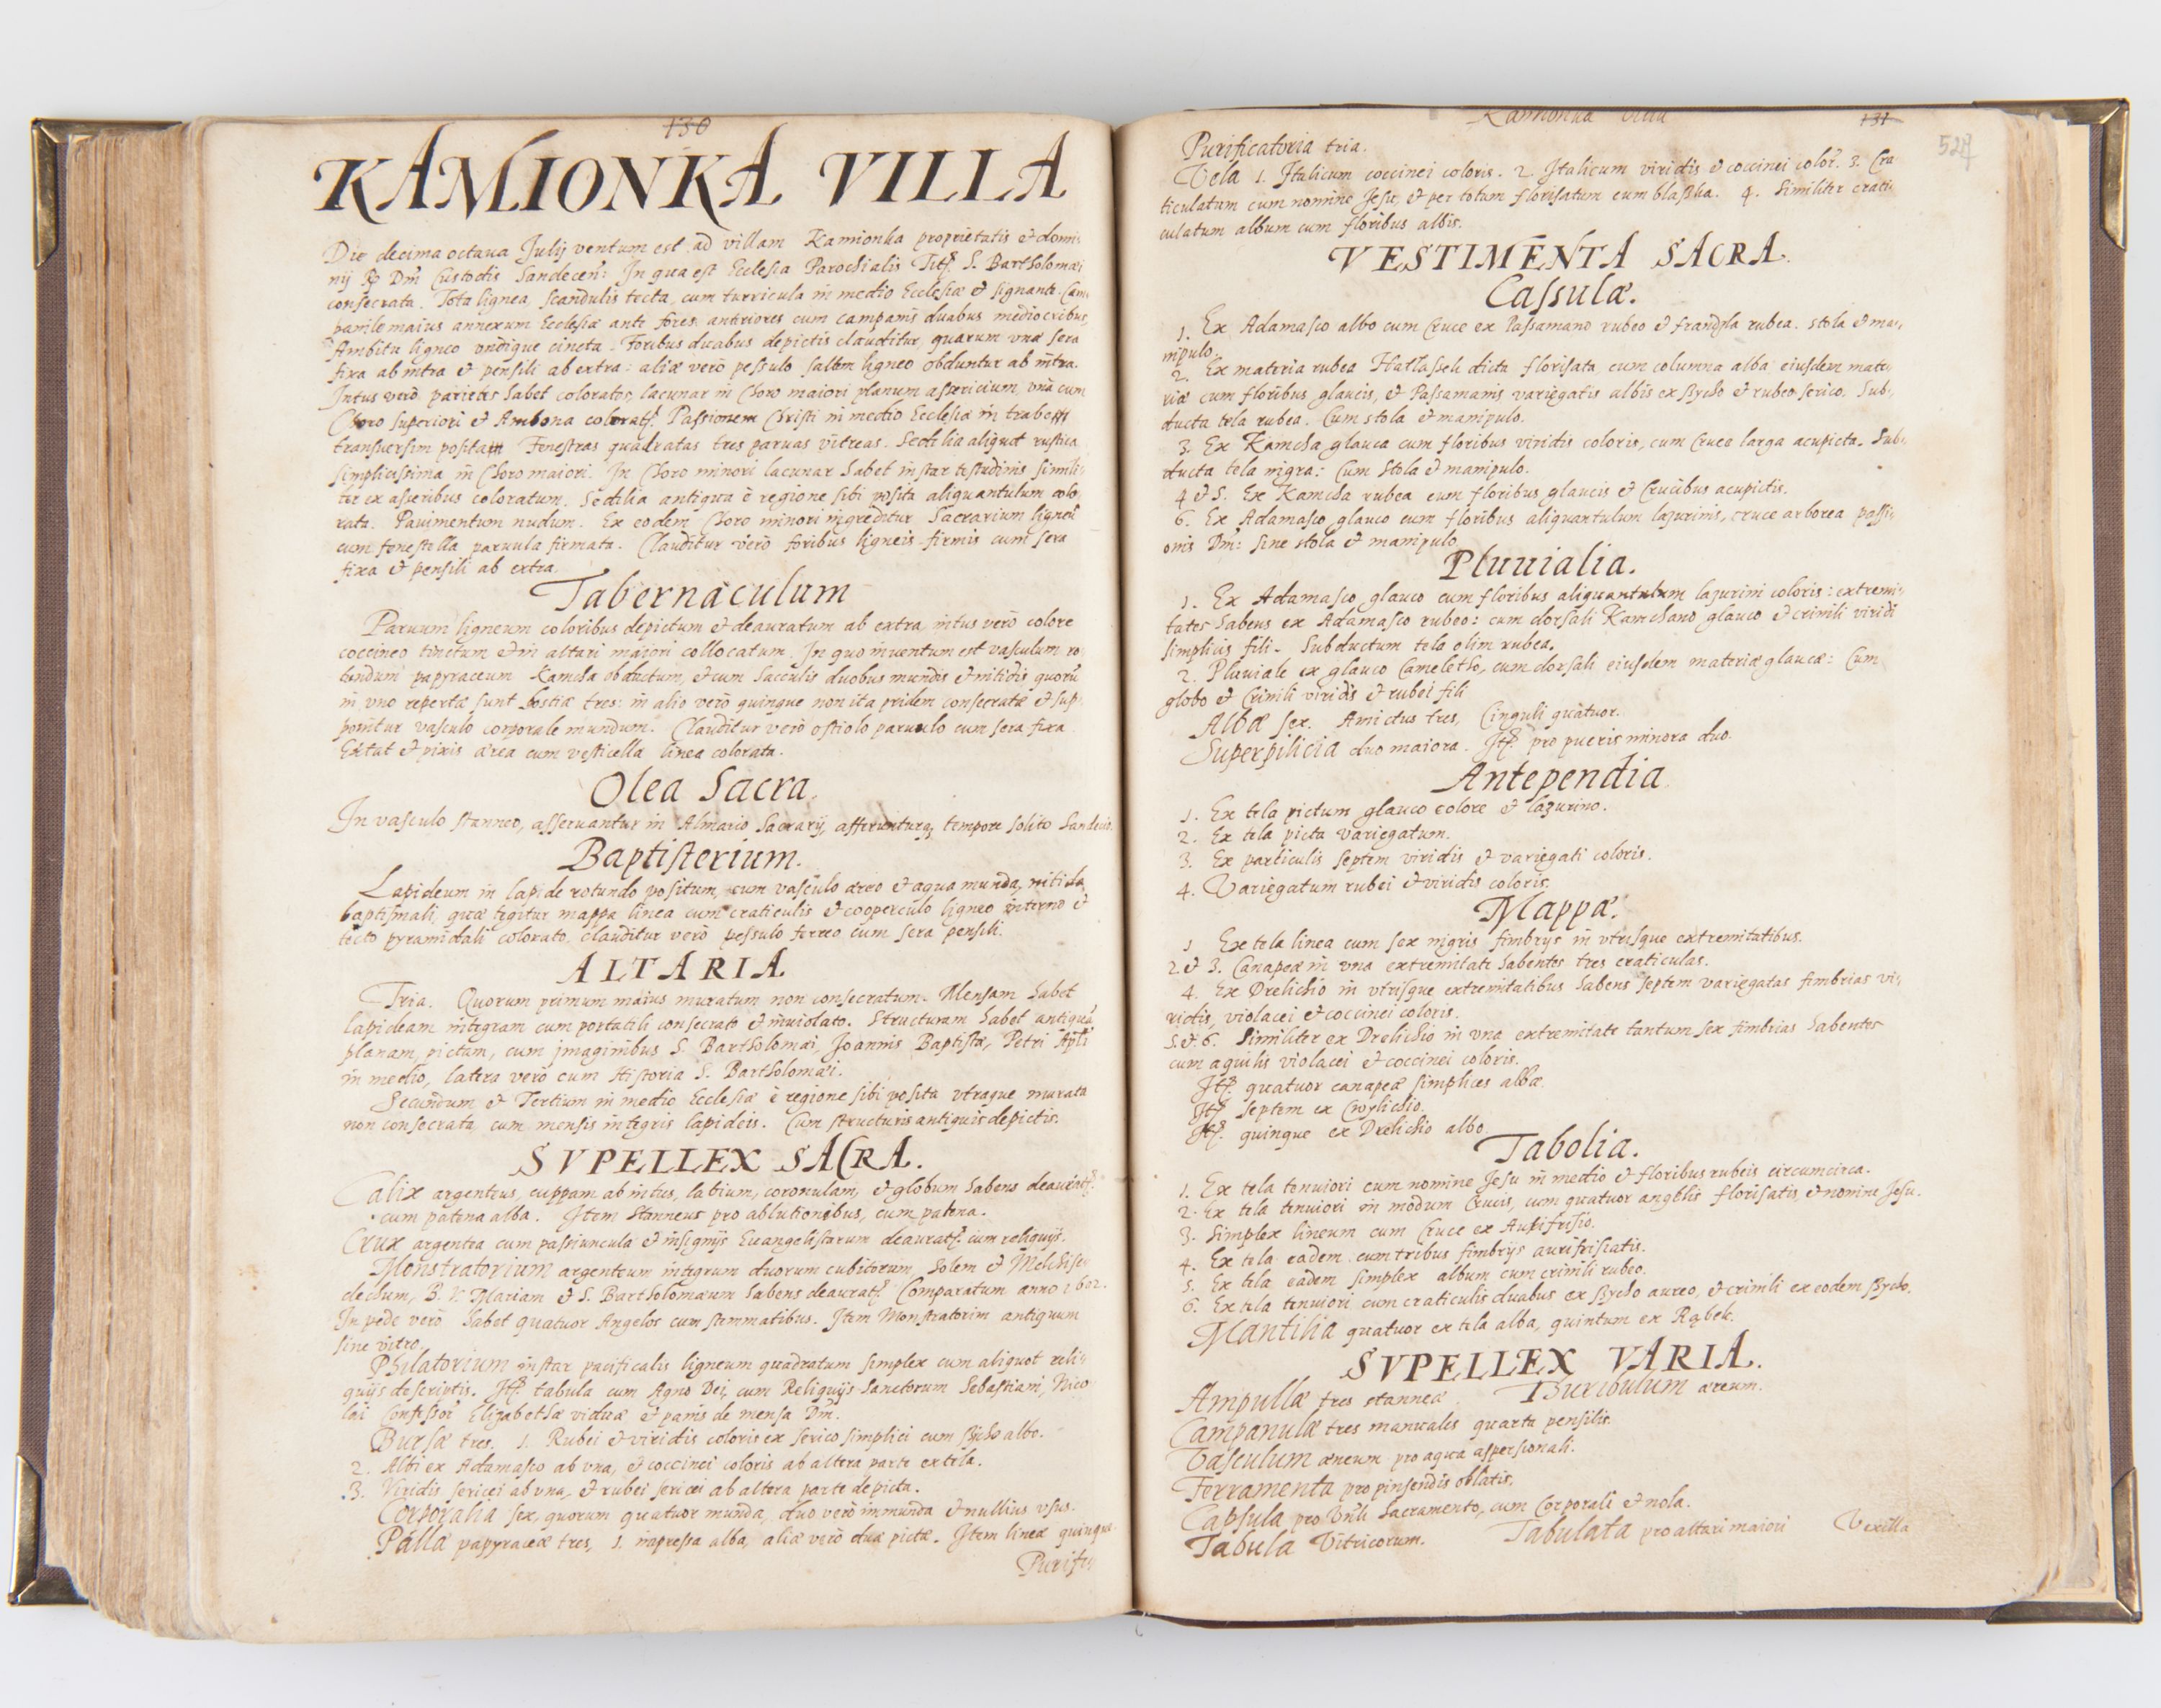 130
KAMIONKA VILLA
Die decima octaua Julij ventum est ad villam Kamionka proprietatis et domi-
nij Dni Custodis Sandecen: In qua est Ecclesia Parochialis Titt. S. Bartholomæi
consecrata. Tota lignea, scandulis tecta, cum turricula in medio Ecclesiæ et signante. Cam-
panile maius annexum Ecclesiæ ante fores anteriores cum campanis duabus mediocribus,
Ambitu ligneo vndique cincta. Foribus duabus depictis clauditur, quarum vna sera
fixa ab intra et pensili ab extra: aliæ verò pessulo saltem ligneo obduntur ab intra.
Intus verò parietes habet coloratos, lacunar in Choro maiori planum assericium, vnà cum
Choro superiori et Ambona colorat. Passionem Christi in medio Ecclesiæ in trabe
transuersim positam Fenestras quadratas tres paruas vitreas. Sedilia aliquot rustica
simplicissima in Choro maiori. In Choro minori lacunar habet instar testudinis simili-
ter ex asseribus coloratum. Sedilia antiqua è regione sibi posita aliquantulum colo-
rata. Pauimentum nudum. Ex eodem Choro minori ingreditur Sacrarium ligneū
cum fenestella paruula firmata. Clauditur verò foribus ligneis firmis cum sera
fixa et pensili ab extra.
Tabernaculum
Paruum ligneum coloribus depictum et deauratum ab extra, intus verò colore
coccineo tinctum et in altari maiori collocatum. In quo inuentum est vasculum ro-
tundum papyraceum Kamcha obductum, et cum sacculis duobus mundis et nitidis quorū
in vno repertæ sunt hostiæ tres: in alio verò quinque non ita pridem consecratæ et sup-
ponitur vasculo corporale mundum. Clauditur verò ostiolo paruulo cum sera fixa.
Extat et pixis ærea cum vesticella linea colorata.
Olea Sacra.
In vasculo stanneo, asseruantur in Almario Sacrarij, afferunturq; tempore solito Sandecio.
Baptisterium.
Lapideum in lapide rotundo positum, cum vasculo æreo et aqua munda, nitida
baptismali, quæ tegitur mappa linea cum craticulis et cooperculo ligneo interno et
tecto pyramidali colorato, clauditur verò pessulo ferreo cum sera pensili.
ALTARIA
Tria. Quorum primum maius muratum non consecratum. Mensam habet
lapideam integram cum portatili consecrato et inuiolato. Structuram habet antiquā
planam, pictam, cum jmaginibus S. Bartholomæi, Joannis Baptistæ, Petri Apli
in medio, latera verò cum Historia S. Bartholomæi.
Secundum et Tertium in medio Ecclesiæ è regione sibi posita vtraque murata
non consecrata, cum mensis integris lapideis. Cum structuris antiquis depictis.
SVPELLEX SACRA.
Calix argenteus, cuppam ab intus, labium, coronulam, et globum habens deaurat.
cum patena alba. Item Stanneus pro ablutionibus, cum patena.
Crux argentea cum passiuncula et insignijs Euangelistarum deaurat. cum reliquijs.
Monstratorium argenteum integrum duorum cubitorum, Solem et Melchise-
dechum, B. V. Mariam et S. Bartholomæum habens deaurat. Comparatum anno 1602.
In pede verò habet quatuor Angelos cum stemmatibus. Item Monstratorim antiquum
sine vitro.
Philatorium instar pacificalis ligneum quadratum simplex cum aliquot reli-
quijs descriptis. Itt. tabula cum Agno Dei, cum Reliquijs Sanctorum Sebastiani, Nico-
lai Confessor Elizabethæ viduæ et panis de mensa Dni.
Bursæ tres. 1. Rubei et viridis coloris ex serico simplici cum ßycho albo.
2. Albi ex Adamasco ab vna, et coccinei coloris ab altera parte ex tela.
3. Viridis sericei ab vna, et rubei sericei ab altera parte depicta.
Corporalia sex, quorum quatuor munda, duo verò immunda et nullius vsus.
Palla papyraceæ tres, 1. impressa alba, aliæ verò duæ pictæ. Item lineæ quinque
Purifi-
Kamionka Villa
131
527
Purificatoria tria.
Vela 1. Italicum coccinei coloris. 2. Italicum viridis et coccinei color. 3. Cra-
ticulatum cum nomine Jesu, et per totum florisatum cum blaßka. 4. Similiter crati-
culatum album cum floribus albis.
VESTIMENTA SACRA.
Cassulæ.
1. Ex Adamasco albo cum Cruce ex Passamano rubeo et frandzla rubea. stola et ma-
nipulo.
2. Ex materia rubea Hatlasseh dicta florisata, cum columna alba eiusdem mate-
riæ cum floribus glaucis, et Passamanis variegatis albis ex ßycho et rubeo serico, Sub-
ducta tela rubea. Cum stola et manipulo.
3. Ex Kamcha glauca cum floribus viridis coloris, cum Cruce larga acupicta. Sub-
ducta tela nigra: Cum Stola et manipulo.
4 et 5. Ex Kamcha rubea cum floribus glaucis et Crucibus acupictis.
6. Ex Adamasco glauco cum floribus aliquantulum lazurinis, cruce arborea passi-
onis Dni: sine stola et manipulo.
Pluuialia.
1. Ex Adamasco glauco cum floribus aliquantulum lazurini coloris: extremi-
tates habens ex Adamasco rubeo: cum dorsali Kamchano glauco et crinili viridi
simplicis fili. Subductum tela olim rubea.
2. Pluuiale ex glauco Cameletho, cum dorsali eiusdem materiæ glaucæ: Cum
globo et Crinili viridis et rubei fili
Albæ sex. Amictus tres, Cinguli quatuor.
Superpilicia duo maiora. Itt. pro pueris minora duo.
Antependia
1. Ex tela pictum glauco colore et lazurino.
2. Ex tela picta variegatum.
3. Ex particulis septem viridis et variegati coloris.
4. Variegatum rubei et viridis coloris.
Mappæ.
1 Ex tela linea cum sex nigris fimbrijs in vtrisque extremitatibus.
2. et 3. Canapeæ in vna extremitate habentes tres craticulas.
4. Ex Drelichio in vtrisque extremitatibus habens septem variegatas fimbrias vi-
ridis, violacei et coccinei coloris.
5. et 6. Similiter ex Drelichio in vna extremitate tantum sex fimbrias habentes
cum aquilis violacei et coccinei coloris.
Itt. quatuor canapeæ simplices albæ.
Itt. septem ex Cwylichio.
Itt. quinque ex Drelichio albo.
Tabolia.
1. Ex tela tenuiori cum nomine Jesu in medio et floribus rubeis circumcirca.
2. Ex tela tenuiori in modum Crucis, cum quatuor anglis florisatis, et nomine Jesu.
3. Simplex lineum cum Cruce ex Aurifrisio.
4. Ex tela eadem cum tribus fimbrijs aurifrisiatis.
5. Ex tela eadem simplex album cum crinili rubeo.
6. Ex tela tenuiori cum craticulis duabus ex ßycho aureo, et crinili ex eodem ßycho.
Mantilia quatuor ex tela alba, quintum ex Rąbek.
SVPELLEX VARIA.
Ampullæ tres stanneæ. Thuribulum æreum.
Campanulæ tres manuales quarta pensilis.
Vasculum æneum pro aqua aspersionali.
Ferramenta pro pinsendis oblatis.
Capsula pro Vnli Sacramento, cum Corporali et nola.
Tabula Vitricorum. Tabulata pro altari maiori Vexilla